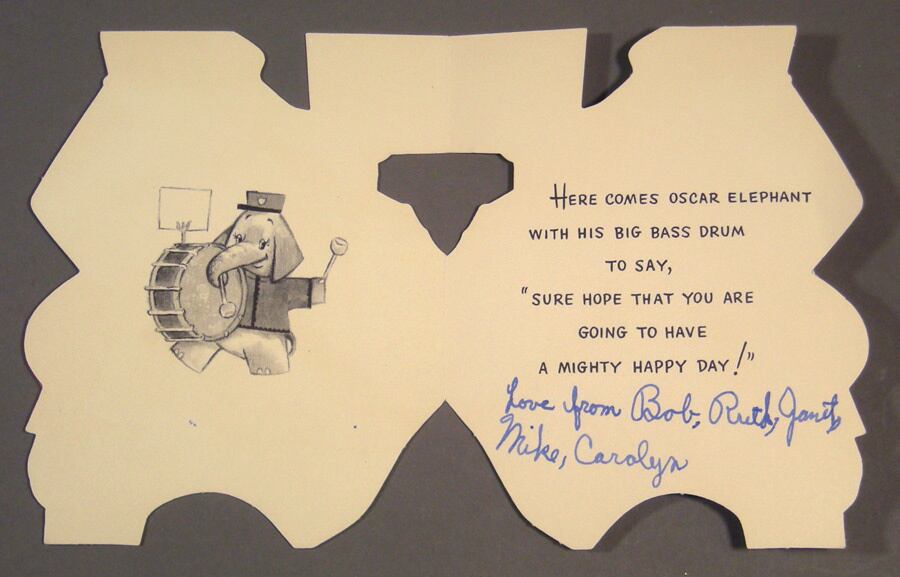 HERE COMES OSCAR ELEPHANT
WITH HIS BIG BASS DRUM
TO SAY,
"SURE HOPE THAT YOU ARE
GOING TO HAVE
A MIGHTY HAPPY DAY!"
Love from Bob, Ruth, Janet,
Mike, Carolyn